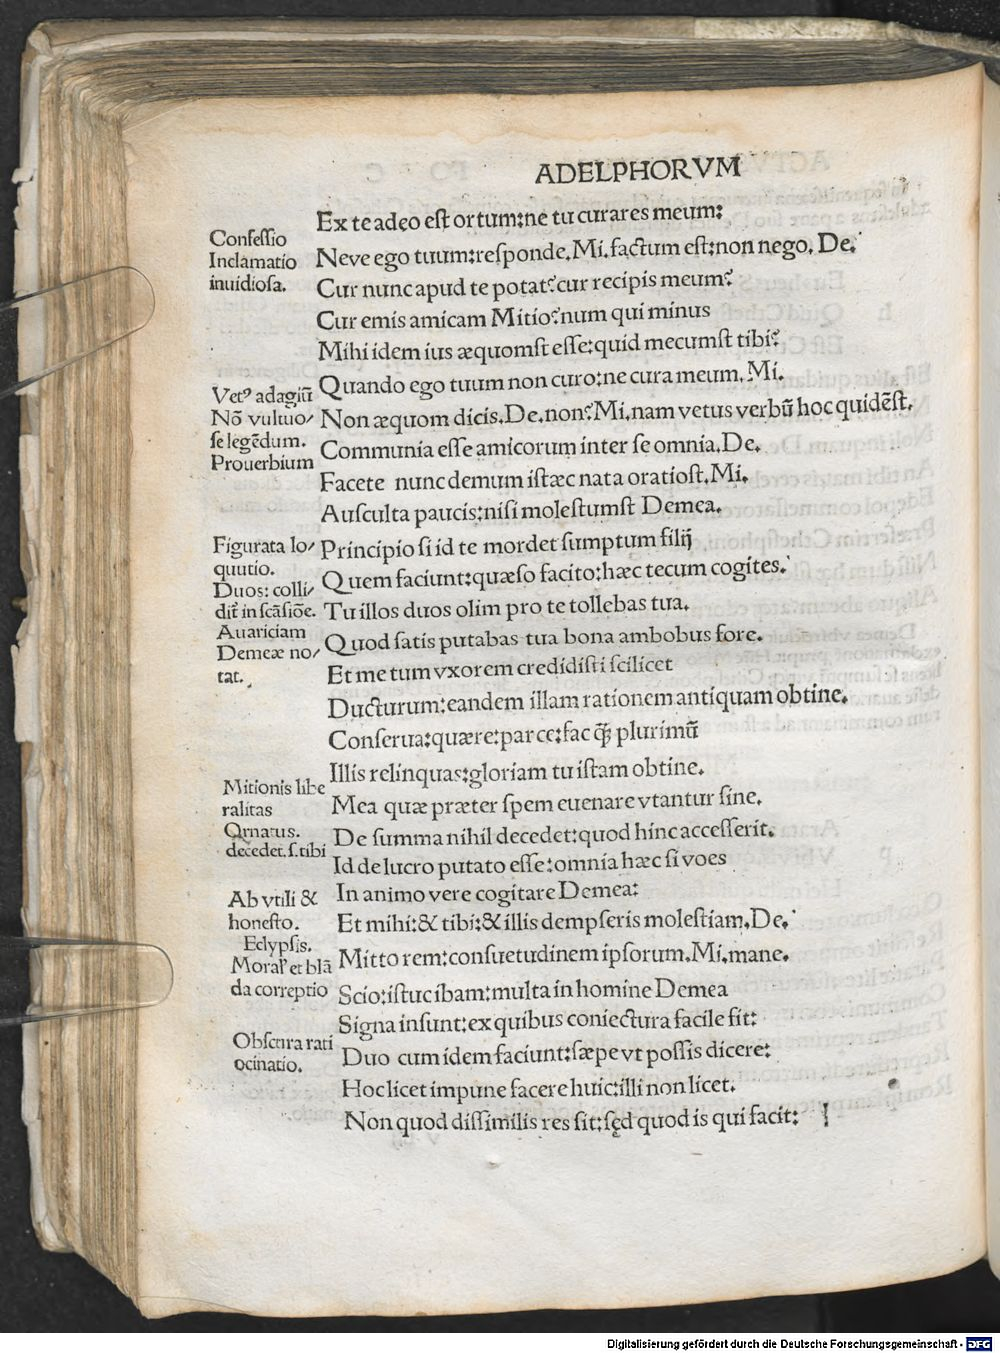 ADELPHORVM
Ex te adeo est ortum:ne tu curares meum:
Confessio
Inclamatio
inuidiosa.
Neve ego tuum:responde.Mi.factum est:non nego.De.
Cur nunc apud te potat?cur recipis meum?
Cur emis amicam Mitio?num qui minus
Mihi idem ius æquomst esse:quid mecumst tibi?
Quando ego tuum non curo:ne cura meum.Mi.
Vetꝰ adagiū
Nō vultuo/
se legēdum.
Prouerbium
Non æquom dicis.De.non?Mi.nam vetus verbū hoc quidēst.
Communia esse amicorum inter se omnia.De.
Facete nunc demum istæc nata oratiost.Mi.
Ausculta paucis:nisi molestumst Demea.
Figurata lo/
quutio.
Duos: colli/
dit̃ in scāsiōe.
Avariciam
Demeæ no/
tat.
Principio si id te mordet sumptum filij
Quem faciunt:quæso facito:hæc tecum cogites.
Tu illos duos olim pro te tollebas tua.
Quod satis putabas tua bona ambobus fore.
Et me tum vxorem credidisti scilicet
Ducturum:eandem illam rationem antiquam obtine.
Conserua:quære:parce:fac q̄ꝫ plurimū
Illis relinquas:gloriam tu istam obtine.
Mitionis libe
ralitas
Ornatus.
decedet.s.tibi
Mea quæ præter spem euenare vtantur sine.
De summa nihil decedet:quod hinc accesserit.
Id de lucro putato esse:omnia hæc si voes
In animo vere cogitare Demea:
Ab vtili &
honesto.
Eclypsis.
Moral' et blā
da correptio
Et mihi:& tibi:& illis dempseris molestiam.De.
Mitto rem:consuetudinem ipsorum.Mi.mane.
Scio:istuc ibam:multa in homine Demea
Signa insunt:ex quibus coniectura facile fit:
Obscura rati
ocinatio.
Duo cum idem faciunt:sæpe vt possis dicere:
Hoc licet impune facere huic:illi non licet.
Non quod dissimilis res sit:sęd quod is qui facit:
Digitalisierung gefördert durch die Deutsche Forschungsgemeinschaft - DFG